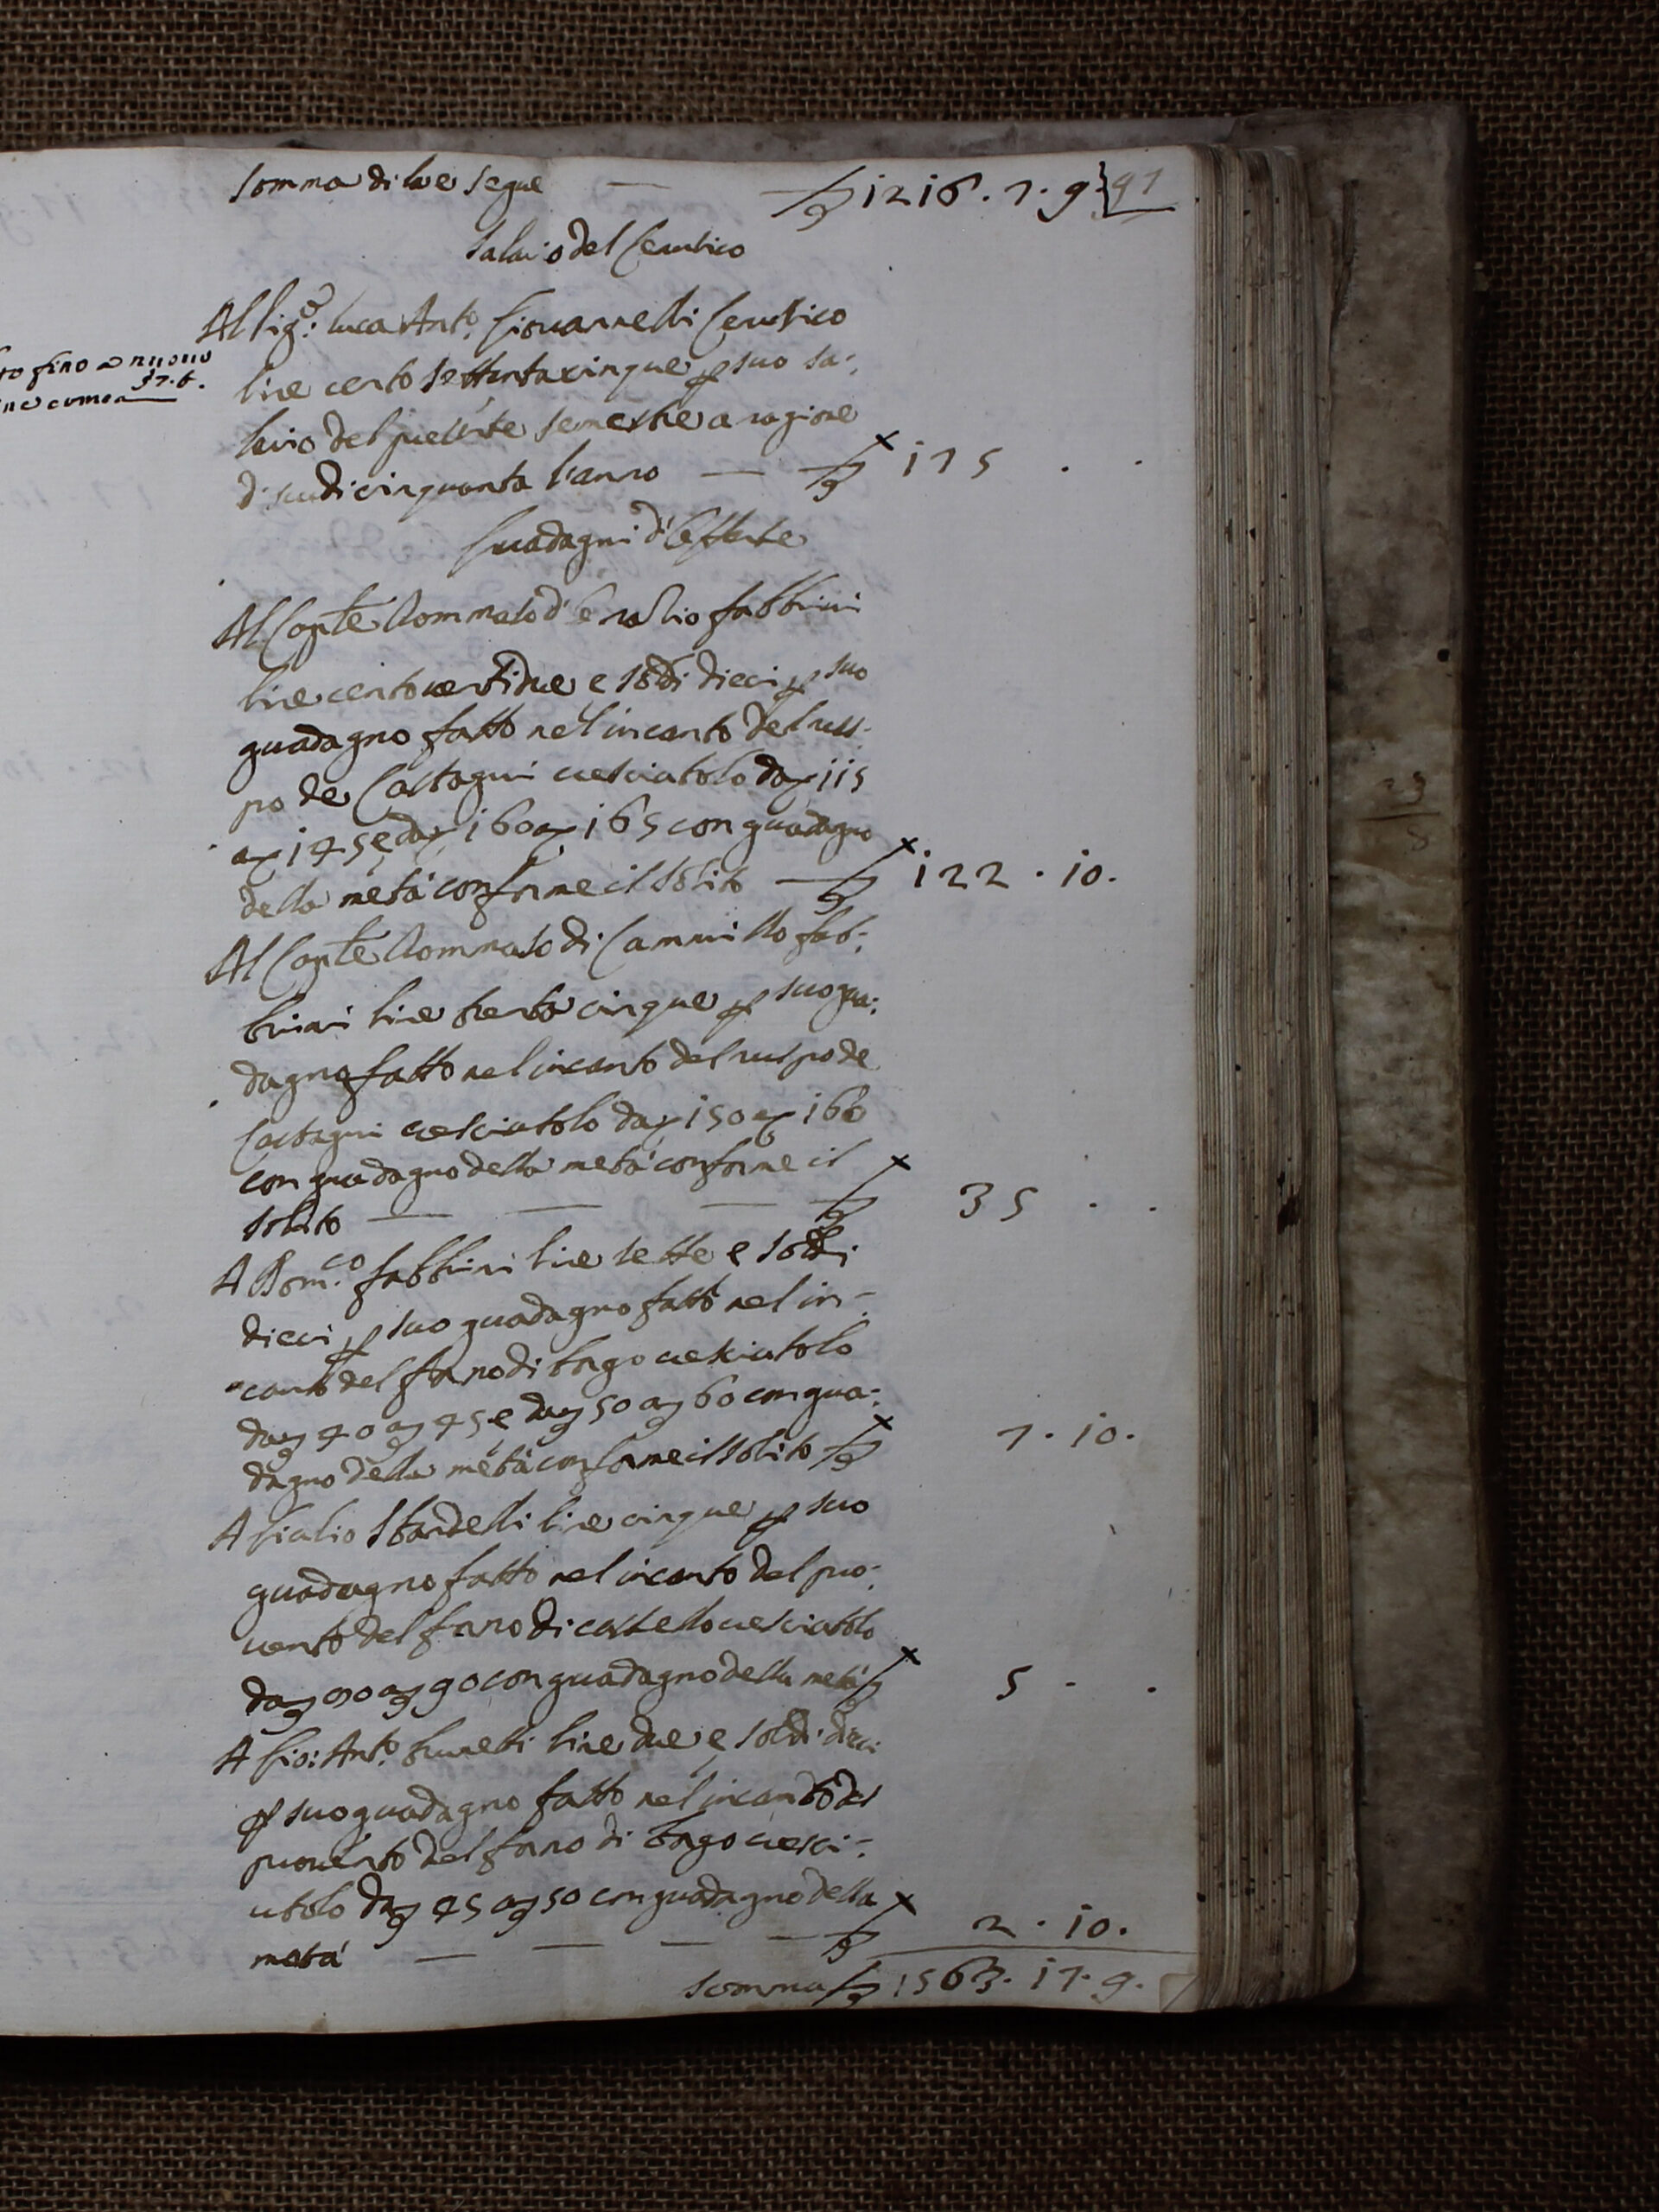 somma di là e segue — £ 1216.7.9 91
Salario del Cerusico
Al Sig.r: Luca Ant.o Giovannelli Cerusico
lire cento settantacinque p suo sa-
lario del presente semestre a ragione
di scudi cinquanta l'anno — £ 175 . .
Guadagni d'Offerte
Al Cap.te Tommaso d'Oratio fabbrini
lire cento uentidue e soldi dieci p suo
guadagno fatto nel incanto del rus-
po de Castagni cresciutolo da £ 115
a £ 145 e da £ 160 a £ 165 con guadagno
della metà conforme il solito — £ 122 . 10 .
Al Cap.te Tommaso di Cammillo fab-
brini lire trenta cinque p suo gua-
dagno fatto nel incanto del ruspo de
Castagni cresciutolo da £ 150 a £ 160
con guadagno della metà conforme il
solito — £ 35 . .
A Dom.co fabbrini lire sette e soldi
dieci p suo guadagno fatto nel in-
canto del forno di borgo cresciutolo
da £ 40 a £ 45 e da £ 50 a £ 60 con gua-
dagno della metà conforme il solito £ 7 . 10 .
A Giulio Sbardelli lire cinque p suo
guadagno fatto nel incanto del pro-
uento del forno di castello cresciutolo
da £ 80 a £ 90 con guadagno della metà £ 5 . .
A Gio: Ant.o brunetti lire due e soldi dieci
p suo guadagno fatto nel incanto del
prouento del forno di borgo cresci-
utolo da £ 45 a £ 50 con guadagno della
metà — £ 2 . 10 .
somma £ 1563 . 17 . 9 .
fino a nuouo
37.6.